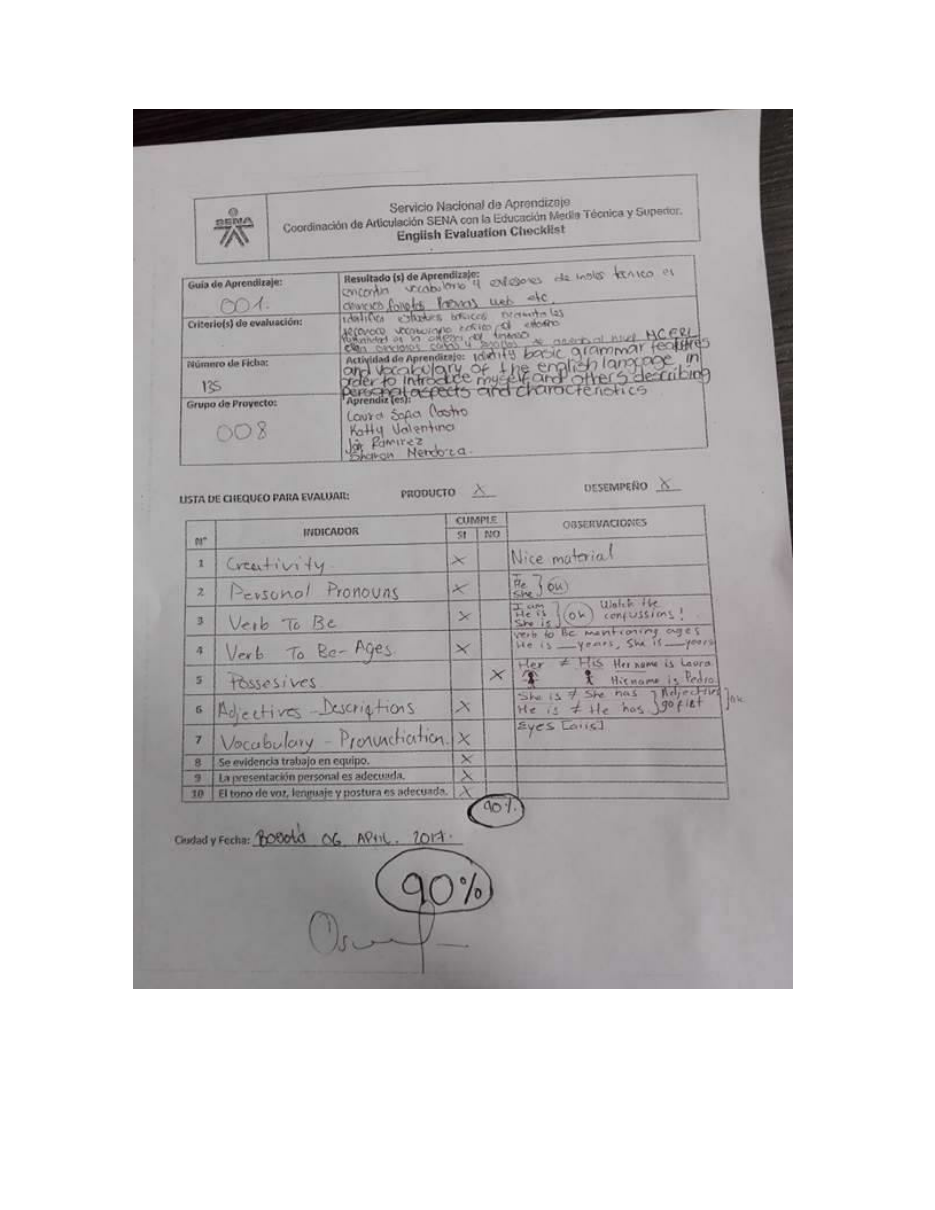 SENA
Servicio Nacional de Aprendizaje
Coordinación de Articulación SENA con la Educación Media Técnica y Superior.
English Evaluation Checklist
Guía de Aprendizaje:
001.
Resultado (s) de Aprendizaje:
vocabulario y de ingles tecnico
web etc.
Criterio(s) de evaluación:
basicos
vocabulario
MCERL
Número de Ficha:
135
Actividad de Aprendizaje: Identify basic grammar features
and vocabulary of the english language in
order to introduce myself and others describing
personal aspects and characteristics
Grupo de Proyecto:
008
Aprendiz (es):
Laura Sofia Castro
Katty Valentina
Ramirez
Sharon Mendoza.
LISTA DE CHEQUEO PARA EVALUAR: PRODUCTO X DESEMPEÑO X
N° INDICADOR CUMPLE OBSERVACIONES
SI NO
1 Creativity X Nice material
2 Personal Pronouns X I He She } OK
3 Verb To Be X I am He is She is } OK Watch the confussions!
4 Verb To Be - Ages X verb to Be mentioning ages
He is __ years, She is __ years
5 Possesives X Her ≠ His Her name is Laura
His name is Pedro
6 Adjectives - Descriptions X She is ≠ She has } Adjectives
He is ≠ He has } go first } ok
7 Vocabulary - Pronunctiation. X Eyes [aiis]
8 Se evidencia trabajo en equipo. X
9 La presentación personal es adecuada. X
10 El tono de voz, lenguaje y postura es adecuada. X
90%
Ciudad y Fecha: Bogotá 06 April. 2017.
90%